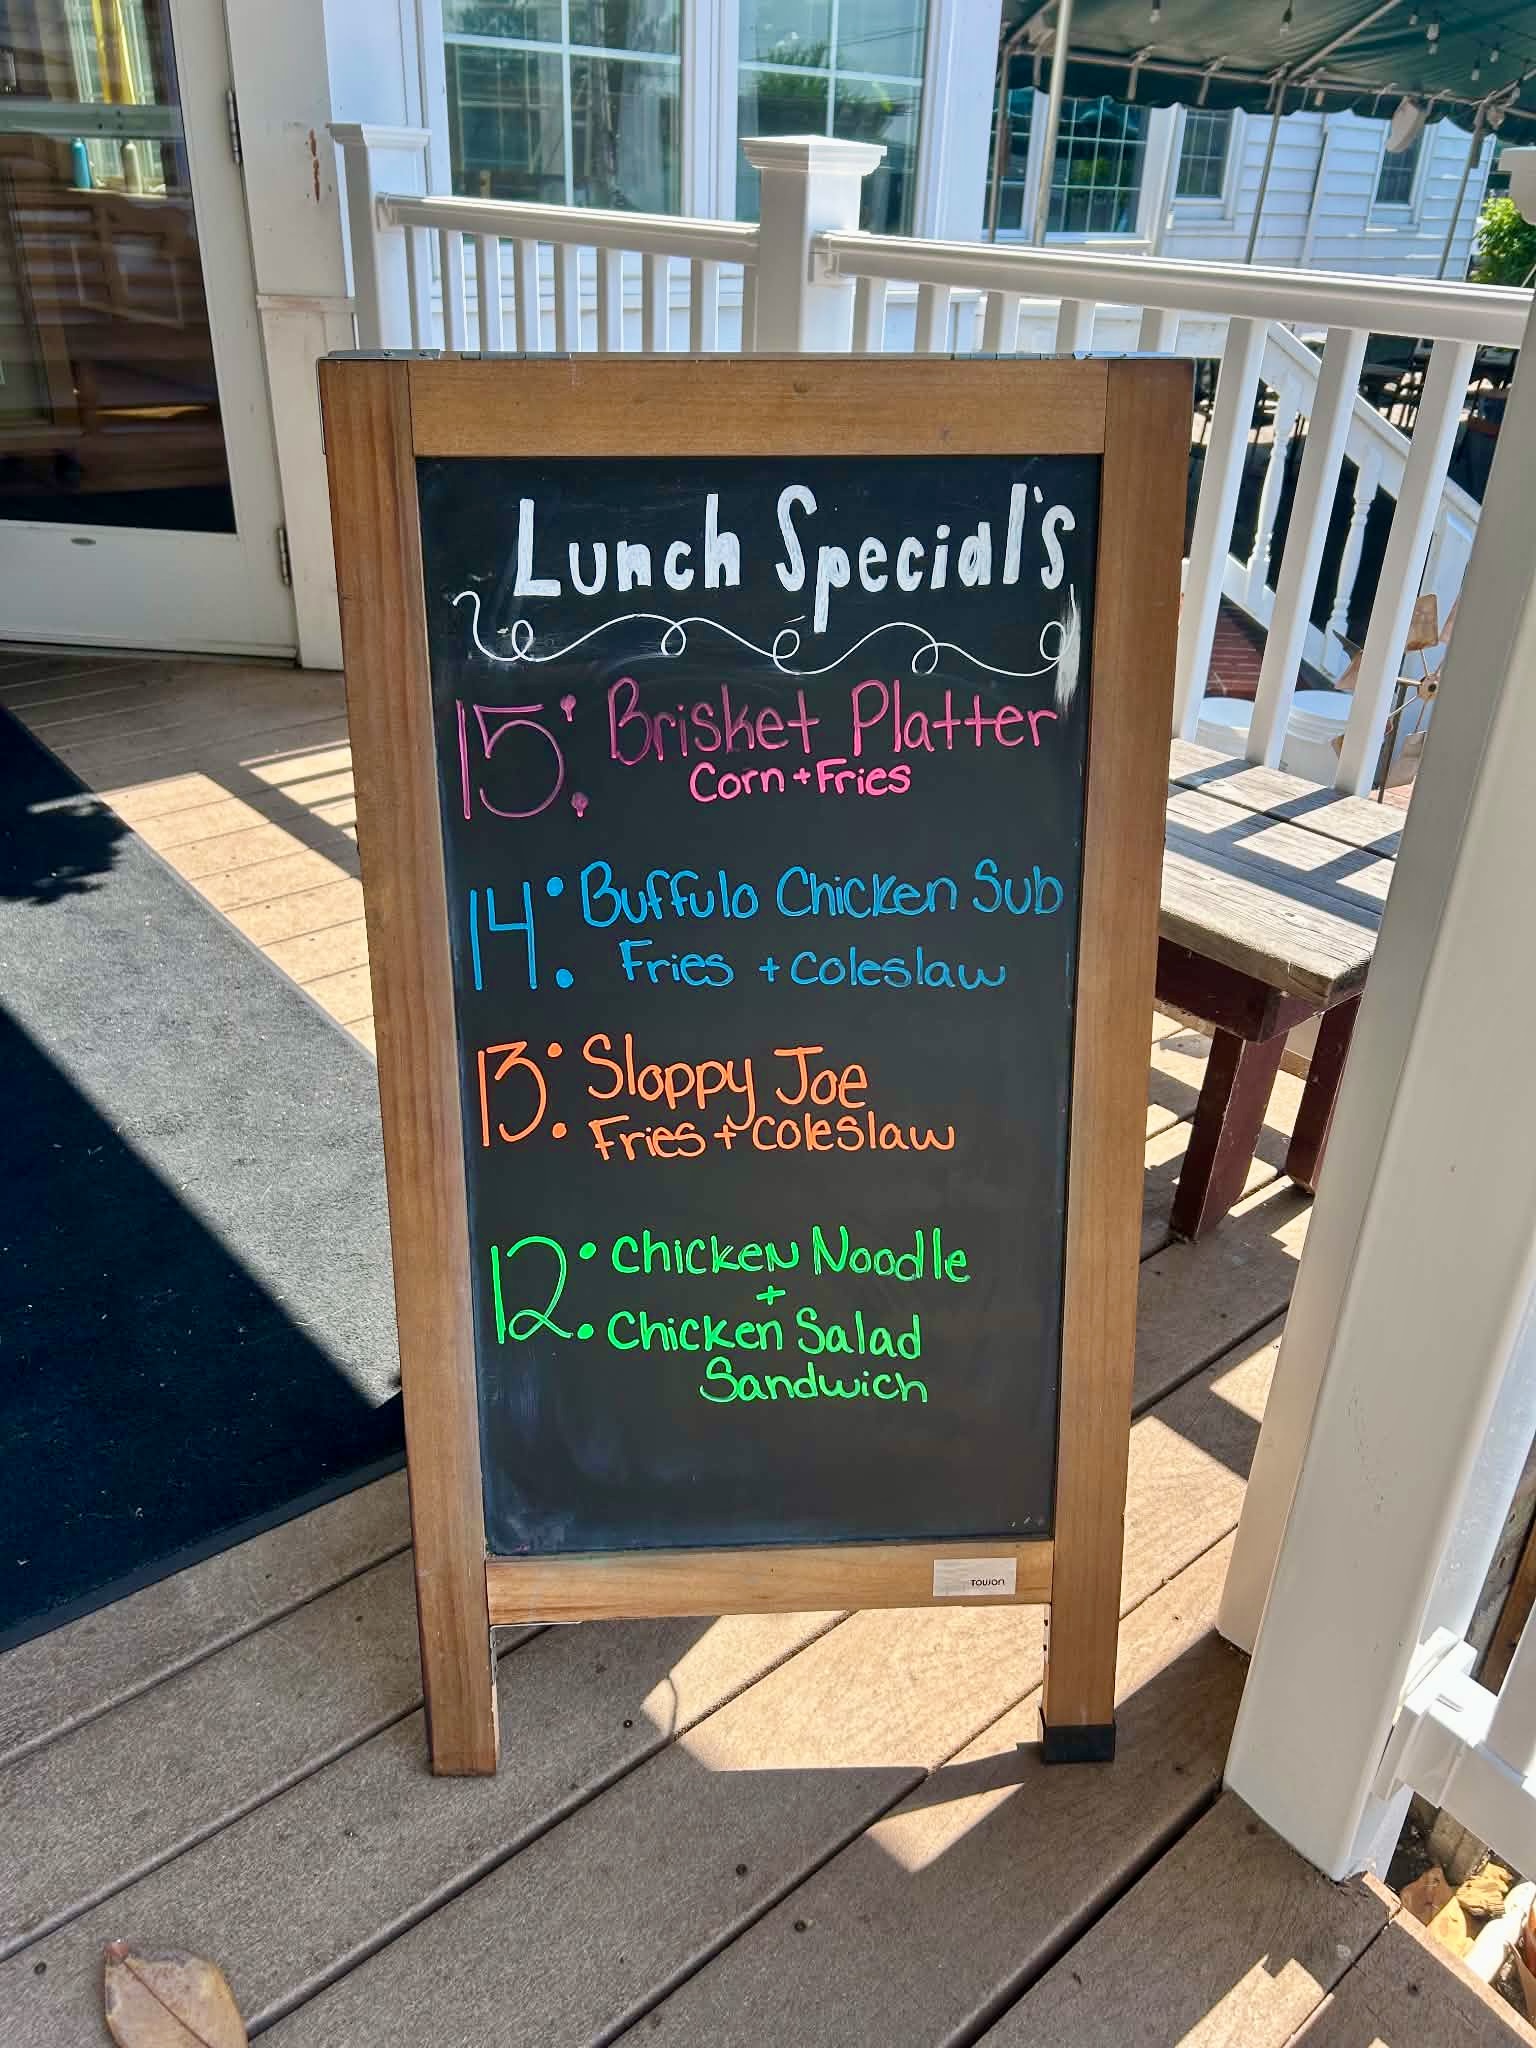 Lunch Special's
15: Brisket Platter
Corn + Fries
14: Buffulo Chicken Sub
Fries + Coleslaw
13: Sloppy Joe
Fries + Coleslaw
12: Chicken Noodle
+
Chicken Salad
Sandwich
TOWON